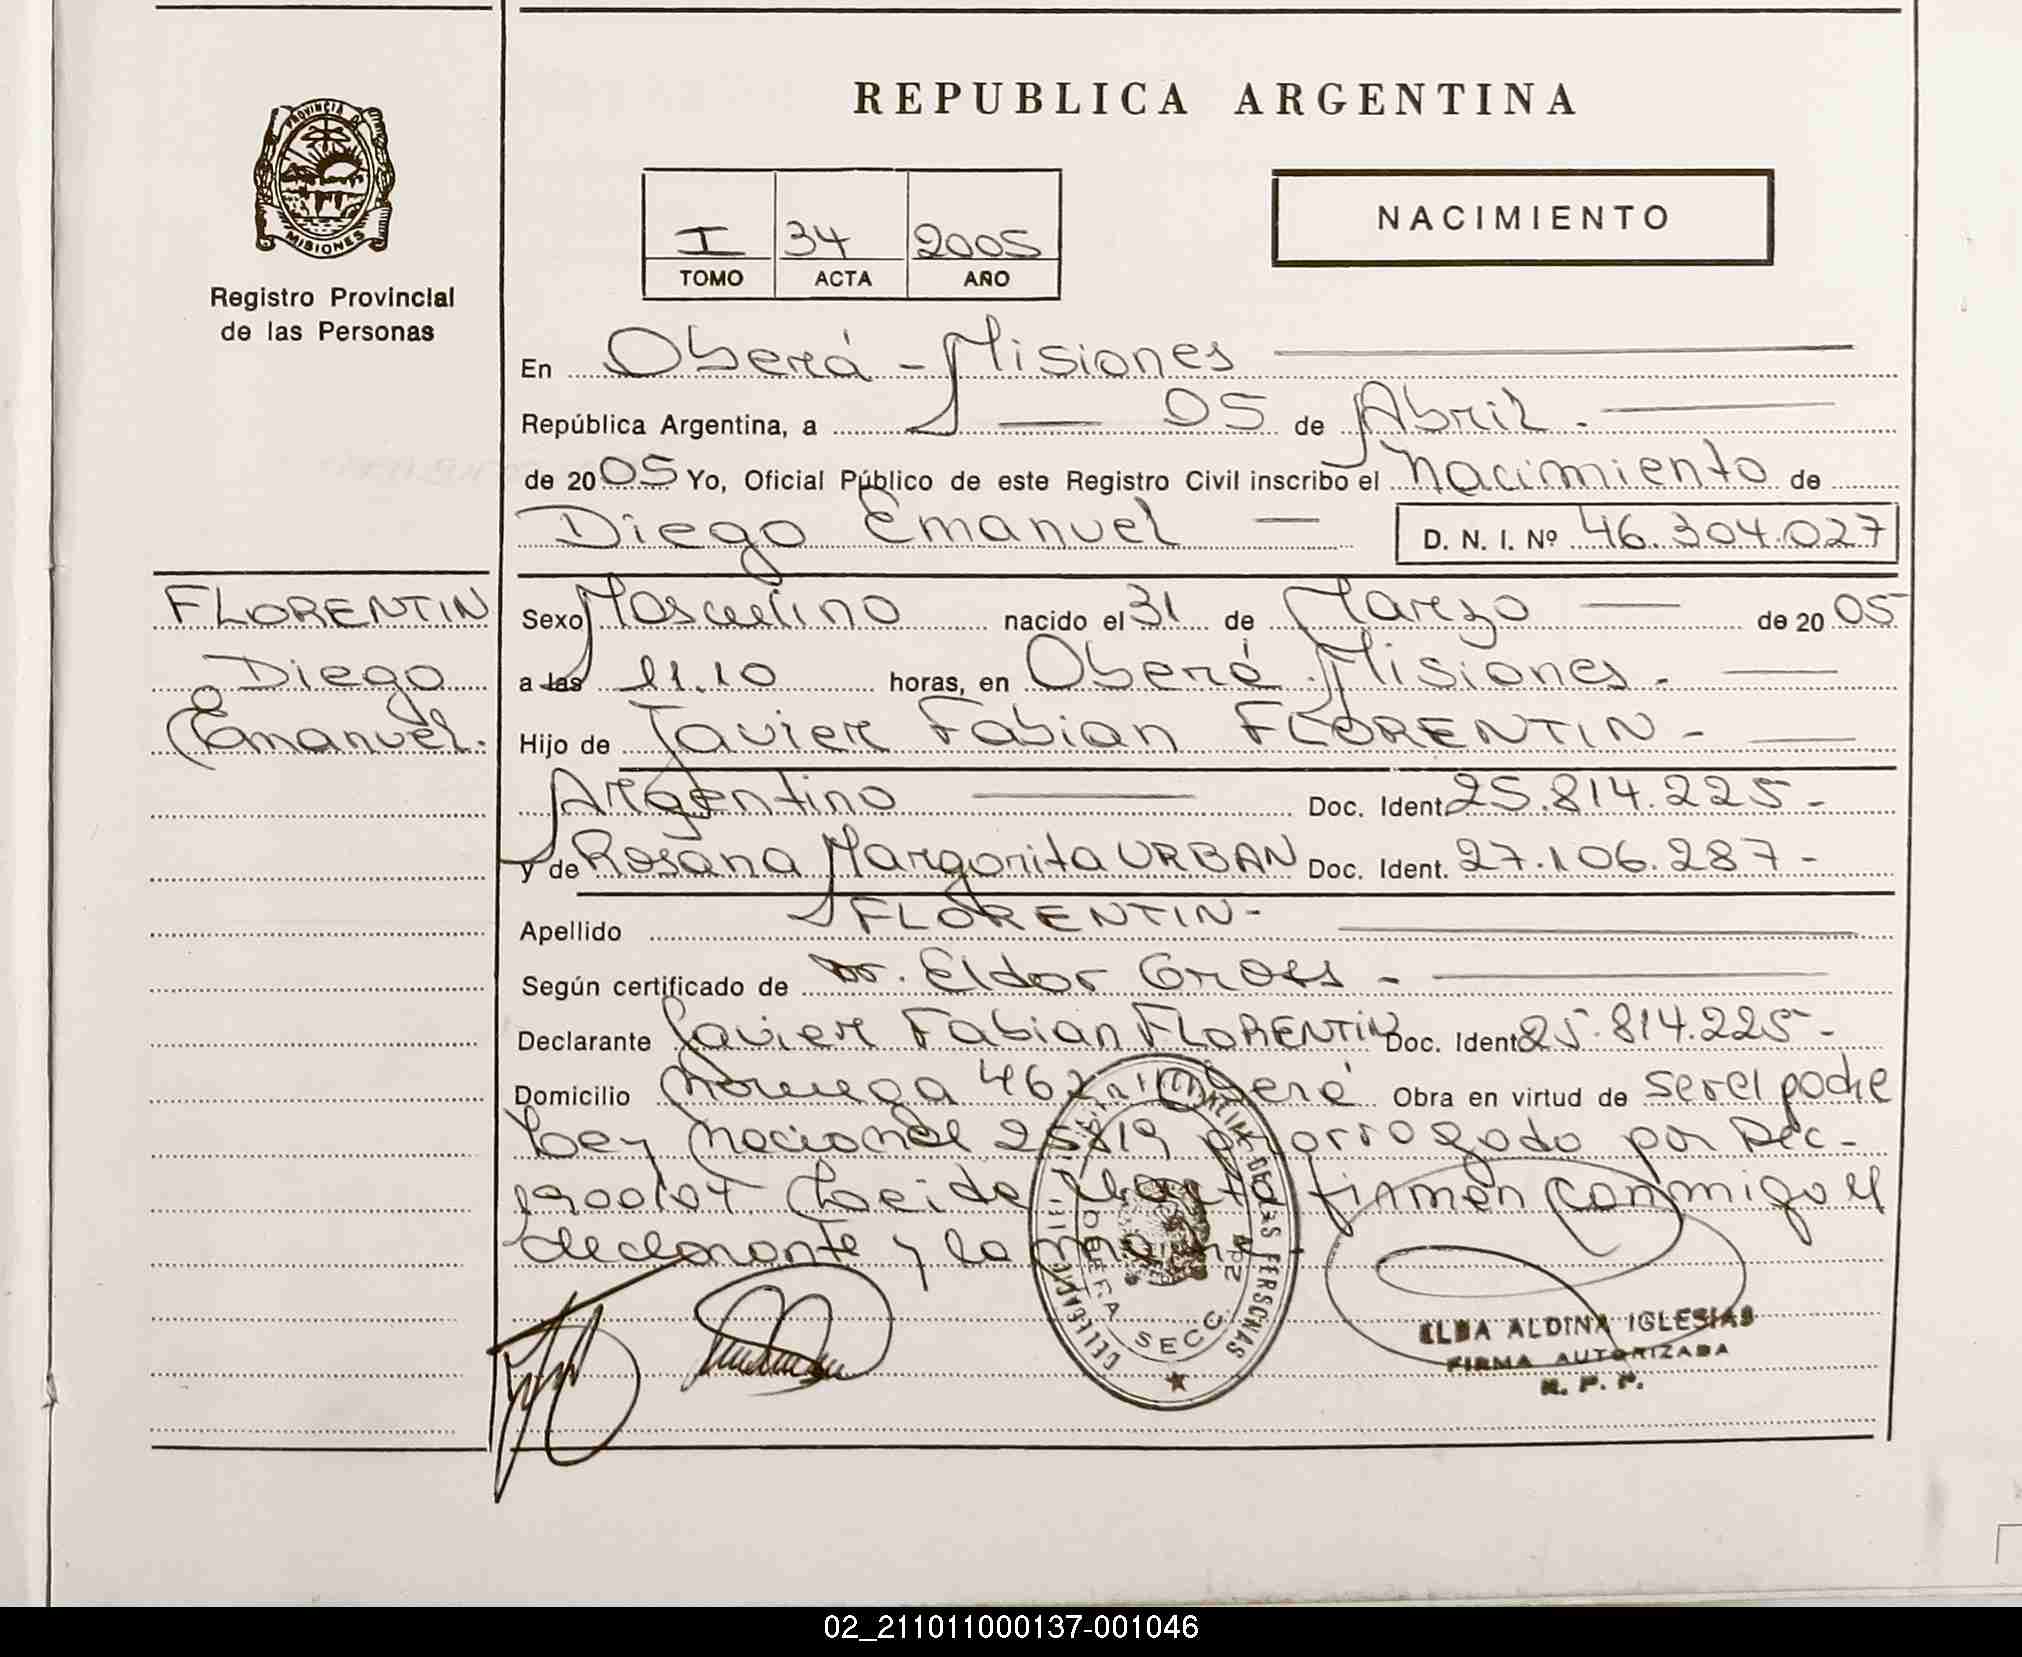 REPUBLICA ARGENTINA
PROVINCIA DE
MISIONES
Registro Provincial
de las Personas
I 34 2005
TOMO ACTA AÑO
NACIMIENTO
En Oberá - Misiones
República Argentina, a 05 de Abril.
de 2005 Yo, Oficial Público de este Registro Civil inscribo el Nacimiento de
Diego Emanuel D. N. I. Nº 46.304.027
FLORENTIN
Diego
Emanuel.
Sexo Masculino nacido el 31 de Marzo de 2005
a las 11.10 horas, en Oberá - Misiones.
Hijo de Javier Fabian FLORENTIN -
Argentino Doc. Ident. 25.814.225 -
y de Rosana Margarita URBAN Doc. Ident. 27.106.287 -
Apellido FLORENTIN -
Según certificado de Dr. Eldor Gross -
Declarante Javier Fabian FLORENTIN Doc. Ident. 25.814.225 -
Domicilio Noruega 462 Oberá Obra en virtud de ser el padre
Ley Nacional 25819 prorrogado por Dec-
1900/04 Leida el acta firman conmigo el
declarante y la madre -
DELEGACION PROVINCIAL DE LAS PERSONAS
OBERA SECC. 2da
ELBA ALDINA IGLESIAS
FIRMA AUTORIZADA
R. P. P.
02_211011000137-001046